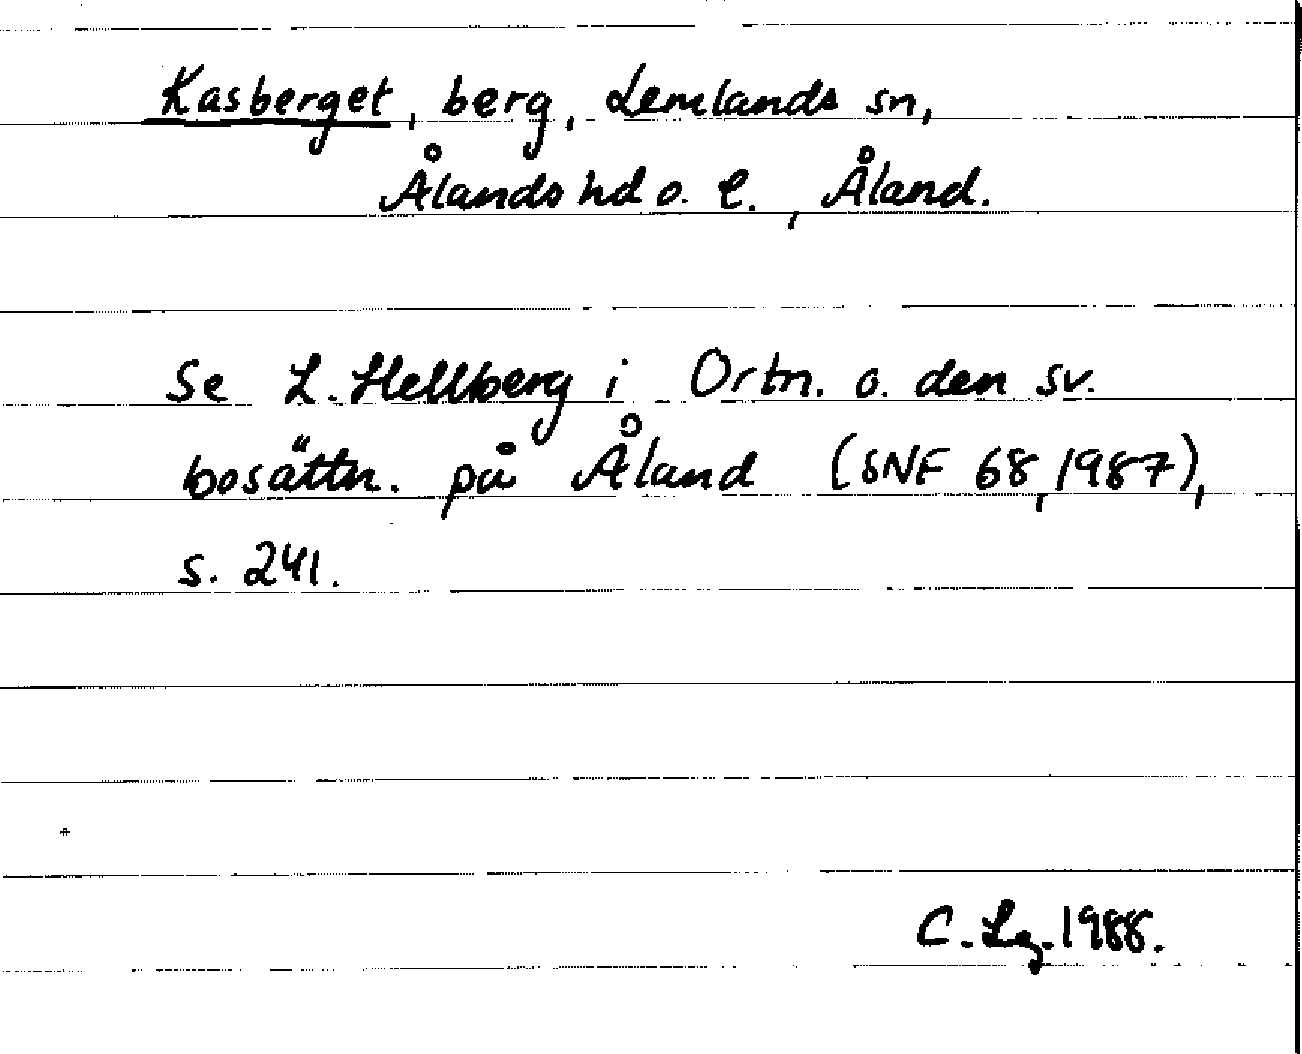 Kasberget, berg, Lemlands sn,
Ålands hd o. l., Åland.
Se L. Hellberg i Ortn. o. den sv.
bosättn. på Åland (SNF 68, 1987),
s. 241.
C. Lg. 1988.